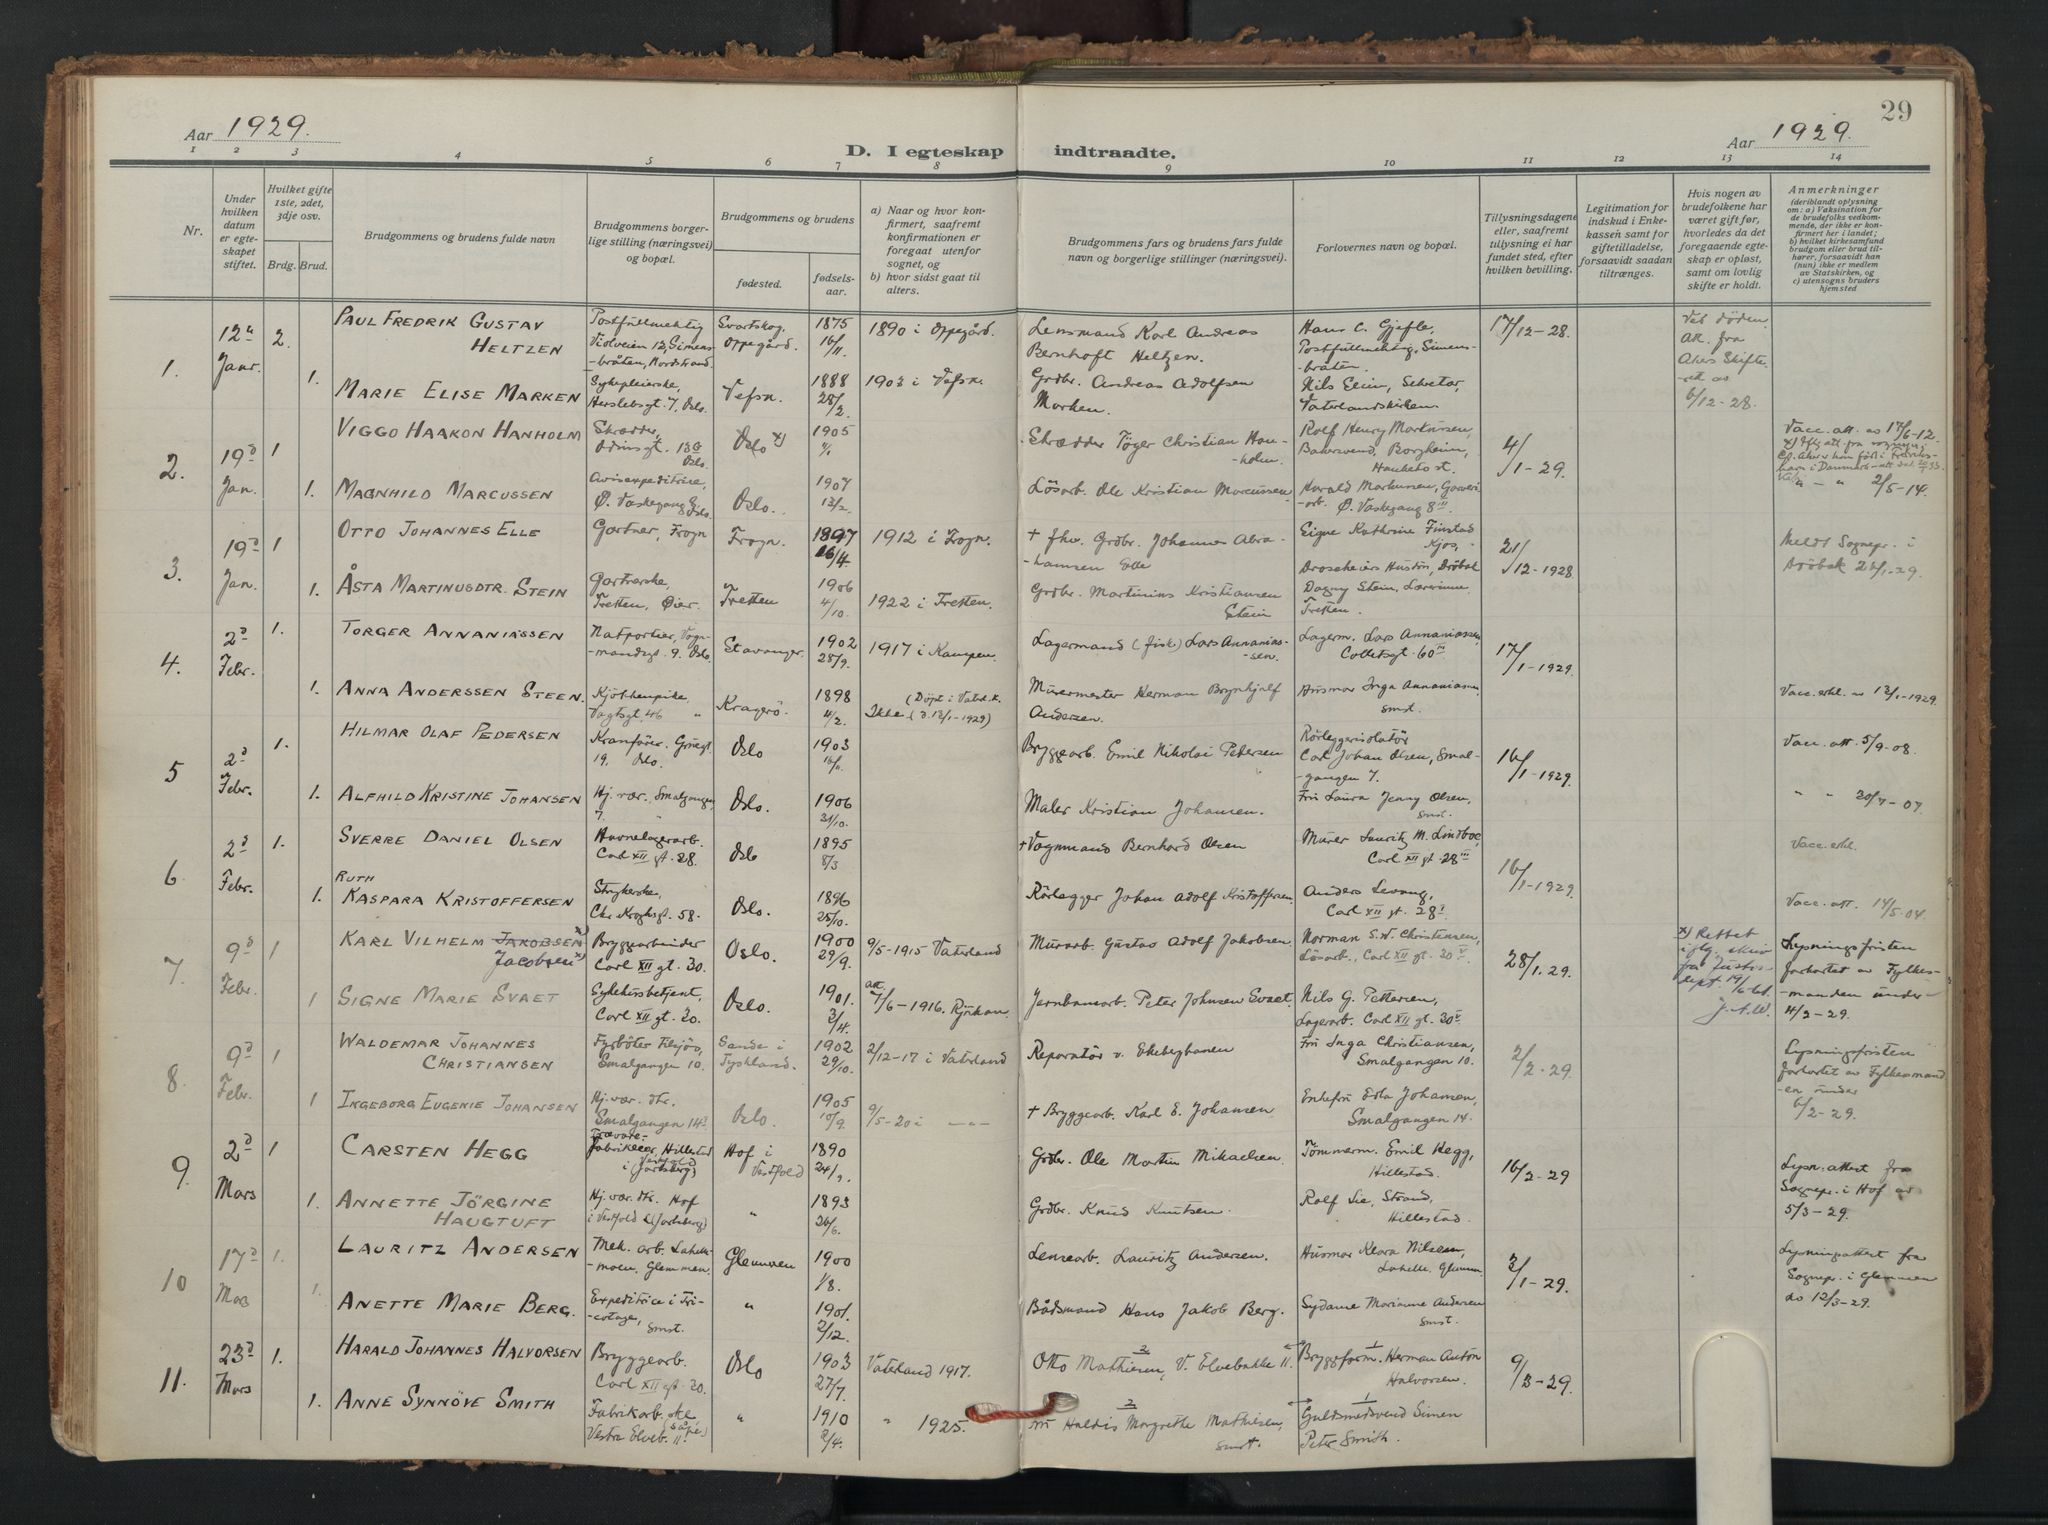 Aar 1929.
D. I egteskap indtraadte.
Aar 1929.
29
1 2 3 4 5 6 7 8 9 10 11 12 13 14
Nr.
Under hvilken datum er egteskapet stiftet.
Hvilket gifte 1ste, 2det, 3dje osv.
Brdg. Brud.
Brudgommens og brudens fulde navn
Brudgommens borgerlige stilling (næringsvei) og bopæl.
Brudgommens og brudens
fødested.
fødselsaar.
a) Naar og hvor konfirmert, saafremt konfirmationen er foregaat utenfor sognet, og
b) hvor sidst gaat til alters.
Brudgommens fars og brudens fars fulde navn og borgerlige stillinger (næringsvei).
Forlovernes navn og bopæl.
Tillysningsdagene eller, saafremt tillysning ei har fundet sted, efter hvilken bevilling.
Legitimation for indskud i Enkekassen samt for giftetilladelse, forsaavidt saadan tiltrænges.
Hvis nogen av brudefolkene har været gift før, hvorledes da det foregaaende egteskap er opløst, samt om lovlig skifte er holdt.
Anmerkninger
(deriblandt oplysning om: a) Vaksination for de brudefolks vedkommende, der ikke er konfirmert her i landet; b) hvilket kirkesamfund brudgom eller brud tilhører, forsaavidt han (hun) ikke er medlem av Statskirken, og c) utensogns bruders hjemsted
1. 12 Janr. 2. PAUL FREDRIK GUSTAV HELTZEN Postfullmektig Violveien 12, Simensbråten, Nordstrand. Svartskog. Oppegård. 1875 16/11 1890 i Oppegård. Lensmand Karl Andreas Bernhoft Heltzen. Hans C. Gjefle, Postfullmektig, Simensbråten. 17/12-28. Ved døden. Att. fra Akers Skifteret av 6/12-28.
1. MARIE ELISE MARKEN Sykepleierske, Herslebsgt. 7, Oslo. Vefsn. 1888 28/2 1903 i Vefsn. Grdbr. Andreas Adolfsen Marken. Nils Elein, Sekretær, Vaterlandskirken.
2. 19d Jan. 1 VIGGO HAAKON HANHOLM Skrædder, Odinsgt. 13 Oslo. Oslo x) 1905 Skrædder Töger Christian Hanholm. Rolf Henry Markussen, Bakersvend, Borgheim, 4/1-29. Vacc. att. av 17/6-12.
1. MAGNHILD MARCUSSEN Avisexpeditrice, Ø. Vaskegang 8, Oslo. Oslo. 1907 13/2. Lösarb. Ole Kristian Marcussen. Harald Markussen, Garveriarb. Ø. Vaskegang 8 III " - " 2/5-14.
3. 19d Jan. 1 OTTO JOHANNES ELLE Gartner, Frogn Frogn. 1897 26/4 1912 i Frogn. + fhv. Grdbr. Johannes Abrahamsen Elle Signe Kathrine Finstad Kjos, Droscheiers Hustru, Dröbak 21/12-1928. Meldt Sognepr. i Dröbak 26/1-29.
1. ÅSTA MARTINUSDTR. STEIN Gartnerske, Tretten, Øier. Tretten 1906 4/10. 1922 i Tretten. Grdbr. Martinius Kristiansen Stein Dagny Stein, Lærerinne Tretten.
4. 2d Febr. 1. TORGER ANNANIASSEN Natportier, Vognmandsgt. 9. Oslo. Stavanger. 1902 28/9. 1917 i Kampen. Lagermand (fisk) Lars Annaniassen. Lagerm. Lars Annaniassen, Colletsgt. 60 III 17/1-1929.
1. ANNA ANDERSSEN STEEN. Kjökkenpike, Vagtsgt. 46 " Kragerö. 1898 11/2. Ikke (Döpt i Vaterl. k. d. 13/1-1929) Murermester Herman Brynhjulf Andersen. Husmor Inga Annaniassen smst. Vacc. erkl. av 13/1-1929.
5 2d Febr. 1. HILMAR OLAF PEDERSEN Kranförer. Grüegt. 19. Oslo. Oslo 1903 16/11. Bryggearb. Emil Nikolai Petersen Rörleggerisolatör Carl Johan Olsen, Smalgangen 7. 16/1-1929. Vacc. att. 5/9-08.
1. ALFHILD KRISTINE JOHANSEN Hj. vær., Smalgangen 7. " Oslo. 1906 31/10. Maler Kristian Johansen. Fru Laura Jenny Olsen, smst. " " 30/7-07.
6 2d Febr. 1. SVERRE DANIEL OLSEN Havnelagerarb. Carl XII gt. 28. Oslo 1895 8/3 + Vognmand Bernhard Olsen Murer Lauritz M. Lindboe, Carl XII gt. 28 III 16/1-1929. Vacc. erkl.
1. RUTH KASPARA KRISTOFFERSEN Strykerske, Chr. Kroghsgt. 58. Oslo. 1896 25/10. Rörlegger Johan Adolf Kristoffersen. Anders Levang, Carl XII gt. 28 I Vacc. att. 14/5-04.
7. 9d Febr. 1 KARL VILHELM JAKOBSEN x) Jacobsen x) Bryggearbeider Carl XII gt. 30. Oslo. 1900 29/9. 9/5-1915 Vaterland Murarb. Gustav Adolf Jakobsen. Norman S.W. Christensen, Lösarb., Carl XII gt. 30 V 28/1.29. x) Rettet iflg. skriv fra Justisdept. 19/6-61 Lysningsfristen forkortet av Fylkesmanden under 4/2-29.
1 SIGNE MARIE SVAET Sykehusbetjent, Carl XII gt. 30. Oslo. 1901. 3/4. att. 7/6-1916. Rjukan. Jernbanearb. Peter Johnsen Svaet. Nils G. Pettersen, Lagerarb. Carl XII gt. 30 V
8. 9d Febr. 1 WALDEMAR JOHANNES CHRISTIANSEN Fyrböter Smalgangen 10. Sande i Tyskland. 1902 29/10. 2/12-17 i Vaterland Reparatör v. Ekebergbanen Fru Inga Christiansen, Smalgangen 10. 2/2-29. Lysningsfristen forkortet av Fylkesmanden under 6/2-29.
1 INGEBORG EUGENIE JOHANSEN Hj. vær. dtr. Smalgangen 14 Oslo. 1905 10/9. 9/5-20 i -"- + Bryggearb. Karl E. Johansen Enkefru Erla Johansen, Smalgangen 14.
9. 2d Mars 1 CARSTEN HEGG Trævarefabrikeier, Hillestad i Vestfold (Jarlsberg) Hof i Vestfold 1890 24/9. Grdbr. Ole Martin Mikaelsen. Tömmerm. Emil Hegg, Hillestad. 16/2-29 Lysn. attest fra Sognepr. i Hof av 5/3-29.
1. ANNETTE JÖRGINE HAUGTUFT Hj. vær. dtr. Hof i Vestfold (Jarlsberg) " 1893 26/6. Grdbr. Knud Knutsen. Rolf Lie, Strand, Hillestad.
10 17d Mars 1. LAURITZ ANDERSEN Mek. arb. Lahellemoen, Glemmen. Glemmen 1900 1/8. Lensearb. Lauritz Andersen. Husmor Klara Nilsen, Lahelle, Glemm. 3/1-29. Lysningsattest fra Sognepr. i Glemmen av 12/3-29.
1. ANETTE MARIE BERG. Expeditrice i Tricotage, smst. " 1901. 2/12. Bådsmand Hans Jakob Berg. Sydame Marianne Andersen smst.
11. 23d Mars 1. HARALD JOHANNES HALVORSEN Bryggearb. Carl XII gt. 30. Oslo 1903 27/7. Vaterland 1917. 2 Otto Mathiesen, V. Elvebakke 11. 1 Bryggeform. Herman Anton Halvorsen. 9/3-29.
1. ANNE SYNNÖVE SMITH Fabrikarb.ske (såpe) Vestre Elveb. 11. " 1910 2/4. " 1925. 2 Fru Haldis Margrethe Mathiesen, smst. 1 Guldsmedsvend Simen Peter Smith.